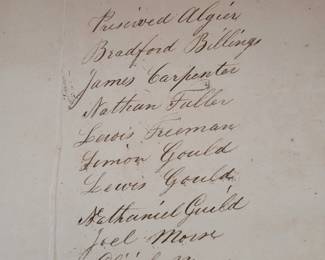 Preserved Alger
Bradford Billings
James Carpenter
Nathan Fuller
Lewis Freeman
Simon Gould
Lewis Gould
Nathaniel Guild
Joel Morse